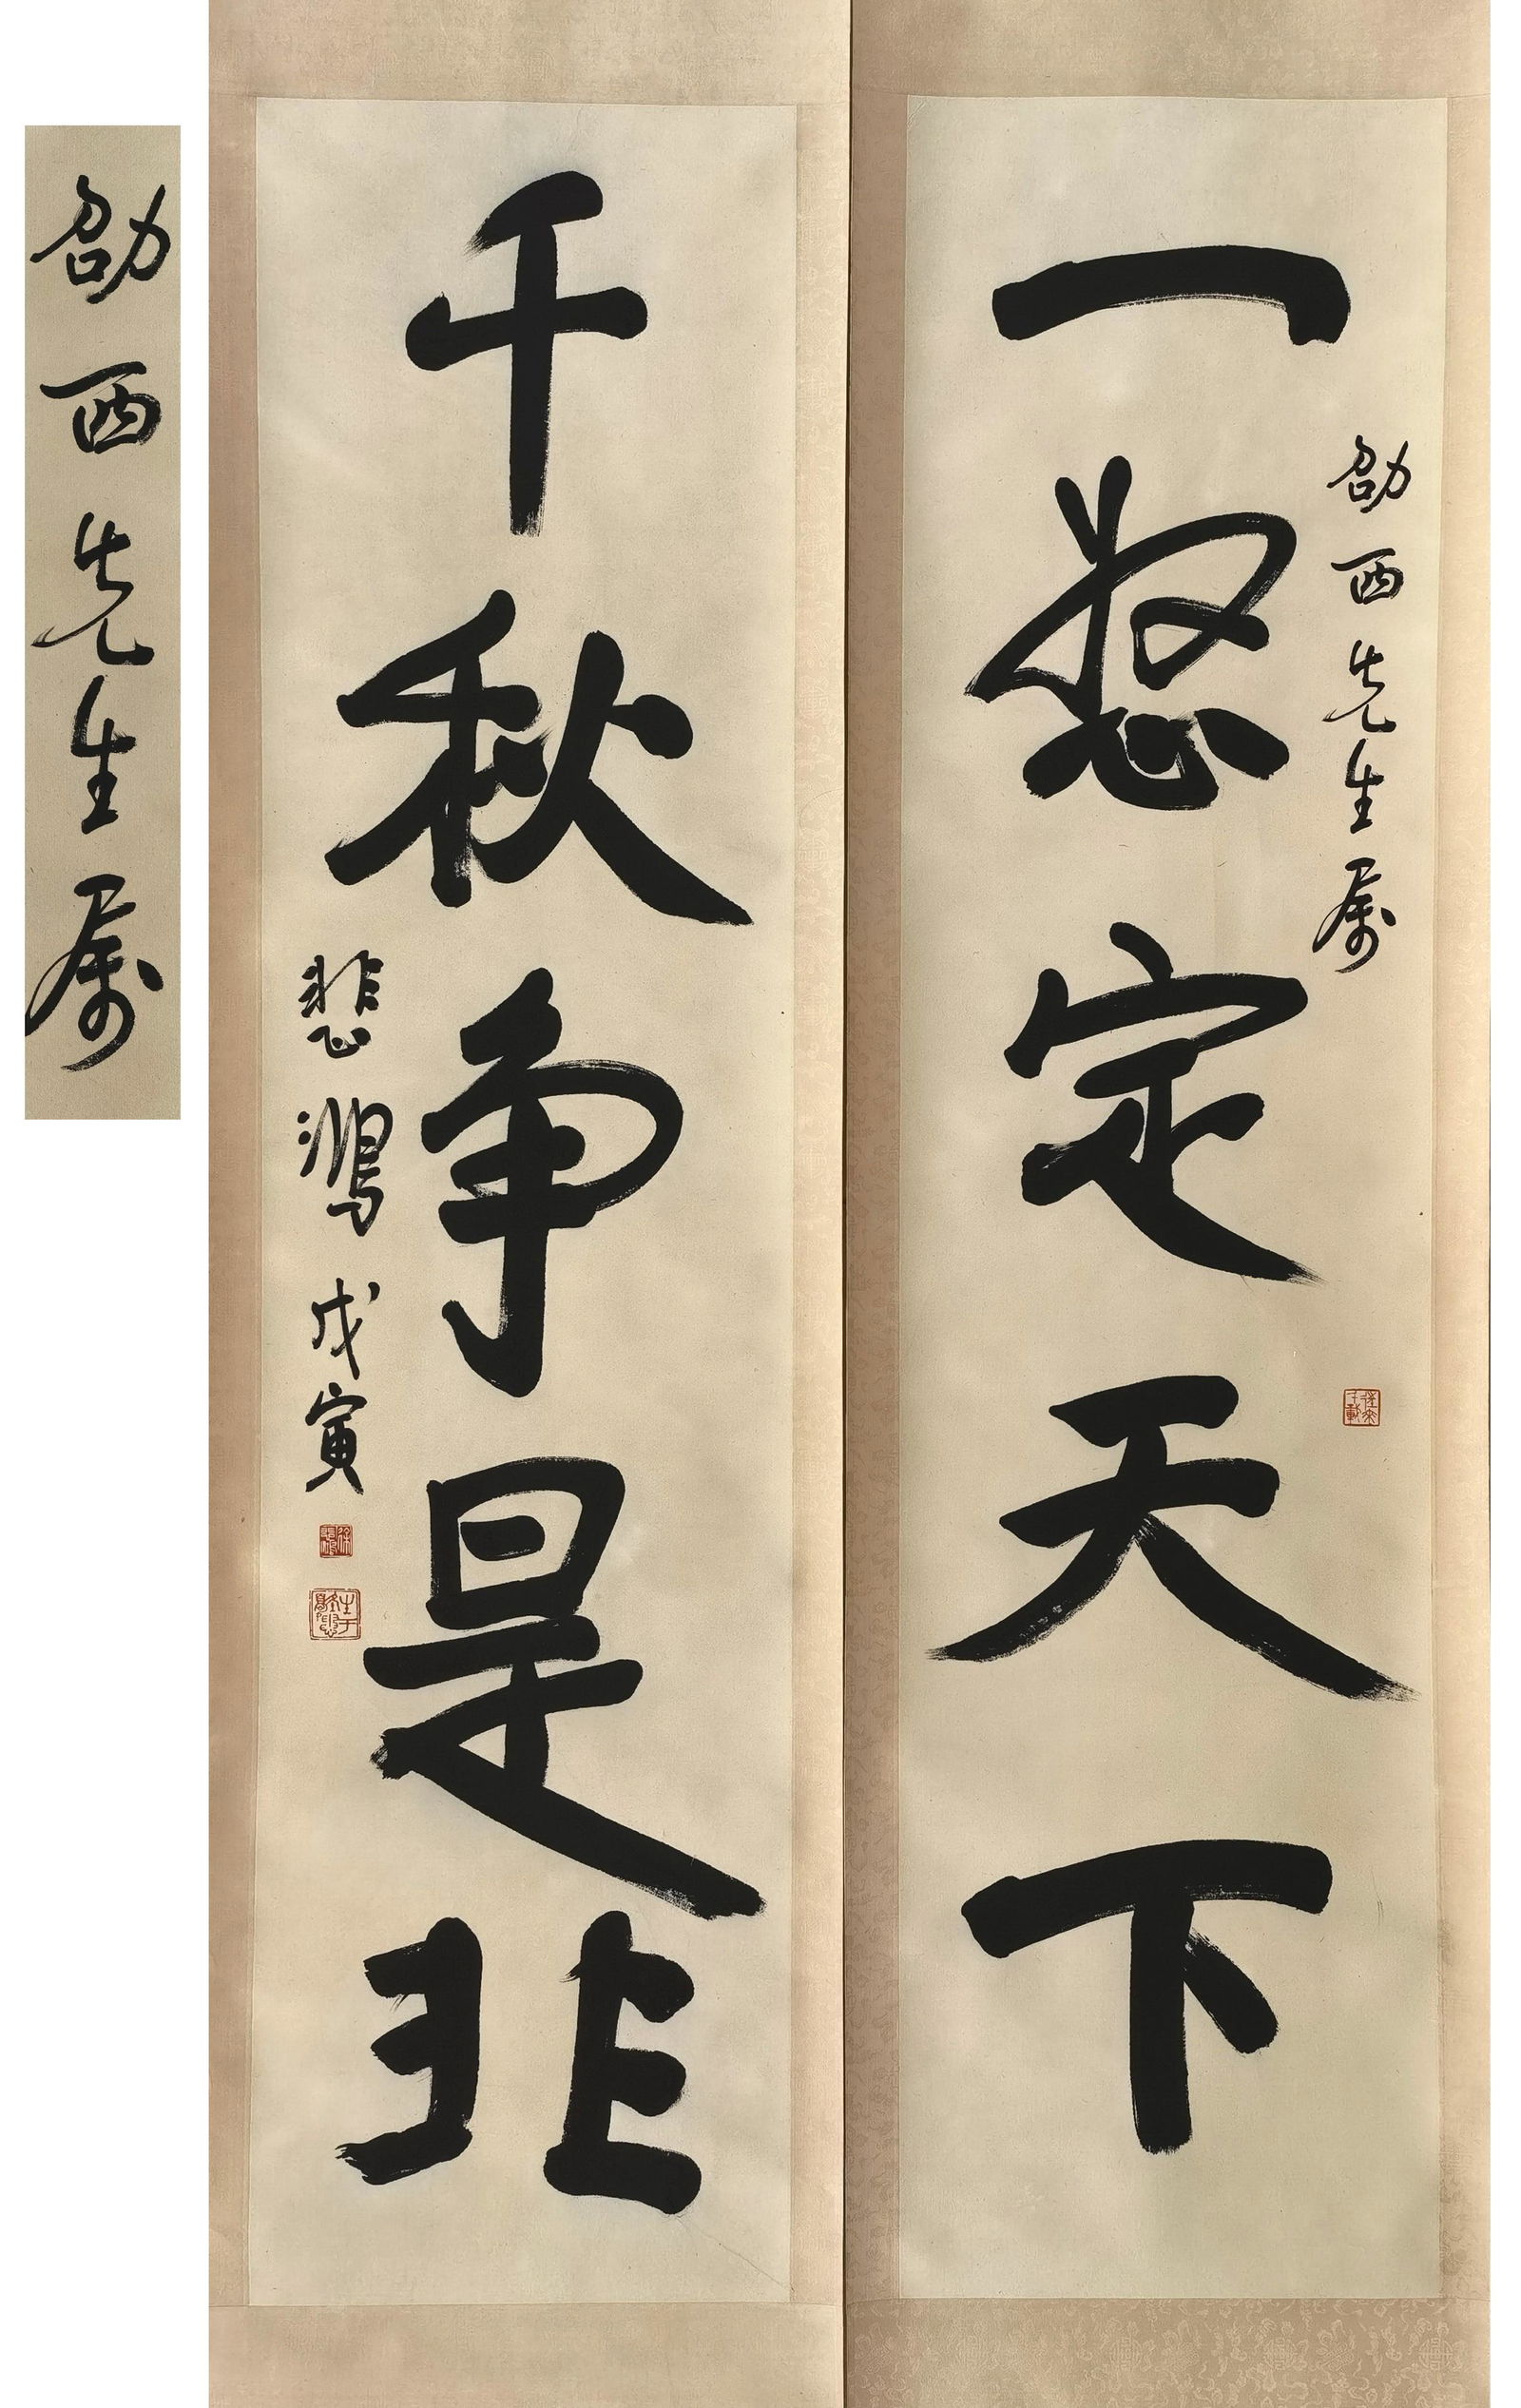 一怒定天下
劭西先生属
千秋争是非
悲鴻 戊寅
劭西先生属